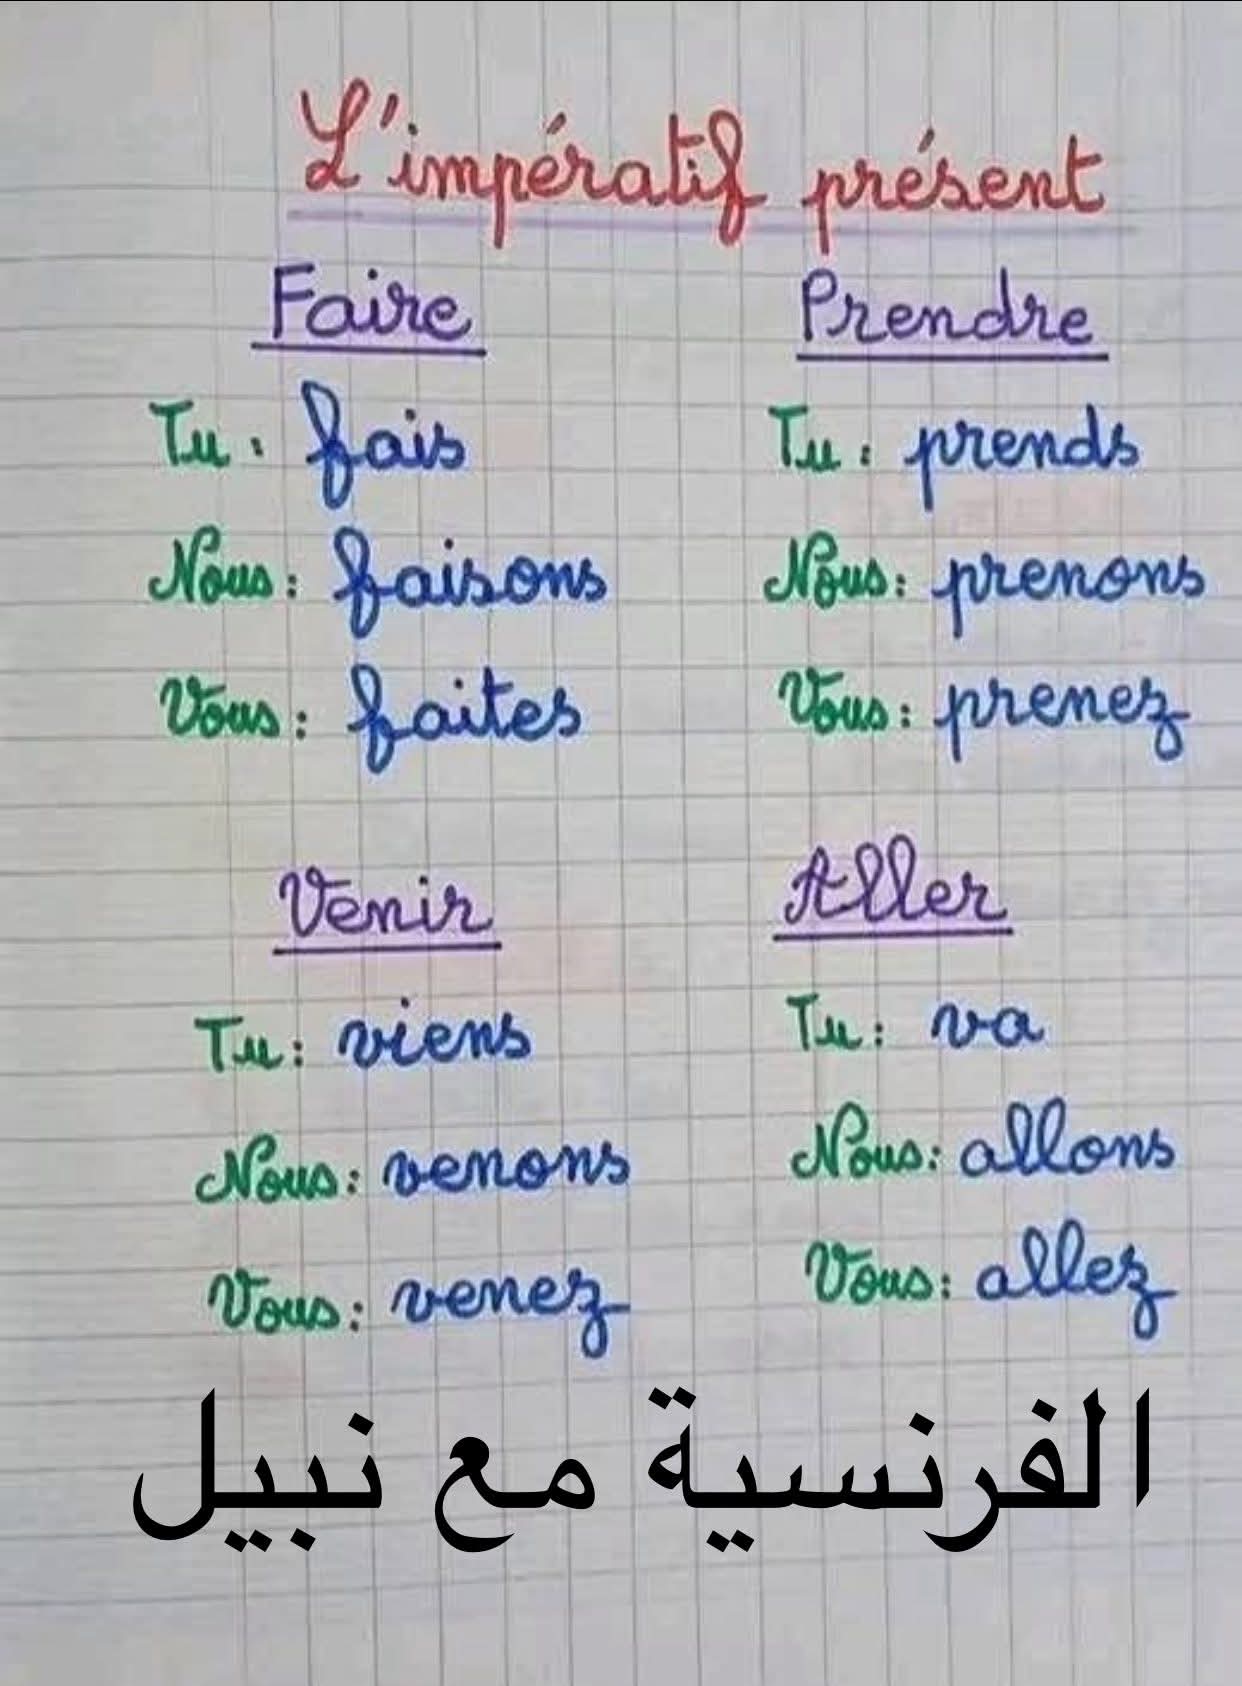 L'impératif présent
Faire
Tu : fais
Nous : faisons
Vous : faites
Prendre
Tu : prends
Nous : prenons
Vous : prenez
Venir
Tu : viens
Nous : venons
Vous : venez
Aller
Tu : va
Nous : allons
Vous : allez
الفرنسية مع نبيل